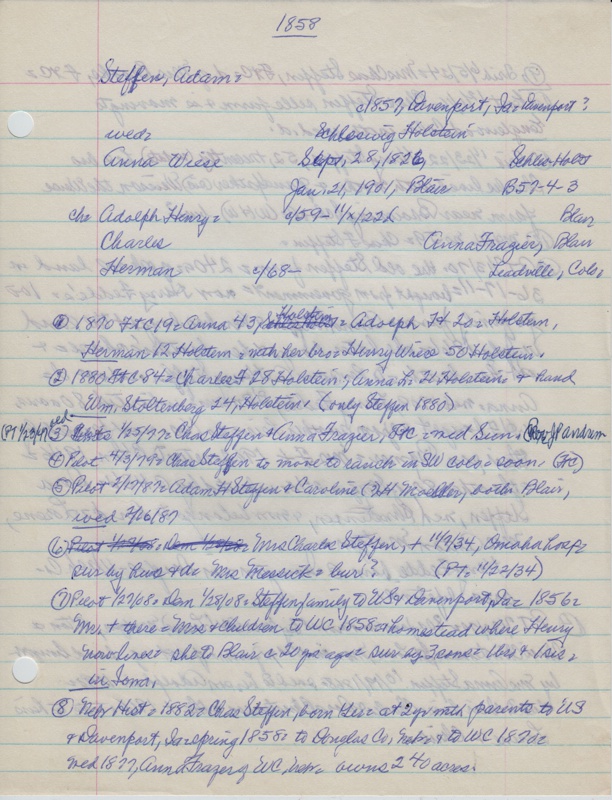 1858
Steffen, Adam=
c1857, Davenport, Ia = Davenport?
wed= Schleswig Holstein
Anna Wiese Sept, 28, 1826, Schles-Holst
Jan. 21, 1901, Blair B57-4-3
ch= Adolph Henry= c/59- 11/x/22 Blair
Charles Anna Frazier, Blair
Herman c/68- Leadville, Colo,
① 1870 FtC 19= Anna 43, Holstein= Adolph H 20= Holstein,
Herman 12 Holstein,= with her bro= Henry Wiese 50 Holstein.
② 1880 FtC 84= Charles F 28 Holstein, Anna L. 21 Holstein & hand
Wm, Stoltenberg 24, Holstein, (only Steffen 1880)
(PT 1/23/97) wed ③ 1/25/77= Chas Steffen & Anna Frazier, FtC = wed Sun=
④ Pilot 4/3/79= Chas Steffen to move to ranch in SW Colo = soon, (FtC)
⑤ Pilot 2/17/87= Adam H Steffen & Caroline H Moeller, both Blair,
wed 2/16/87
⑥ Mrs Charles Steffen, + 11/9/34, Omaha hosp=
sur by hus & d= Mrs Messick= bur? (PT= 11/22/34)
⑦ Pilot 1/27/08= Dem 1/28/08= Steffen family to US & Davenport, Ia= 1856=
Mr, + there = Mrs & children to WC 1858= homestead where Henry
now lives= she to Blair c 20 yrs ago= sur by 3 sons= 1 bro & 1 sis,
in Iowa,
⑧ Nebr Hist= 1882= Chas Steffen, born = at 2 yr with parents to US
& Davenport, Ia= spring 1858= to Douglas Co, Nebr= & to WC 1870=
wed 1877, Anna Frazer of WC, Nebr= owns 240 acres.